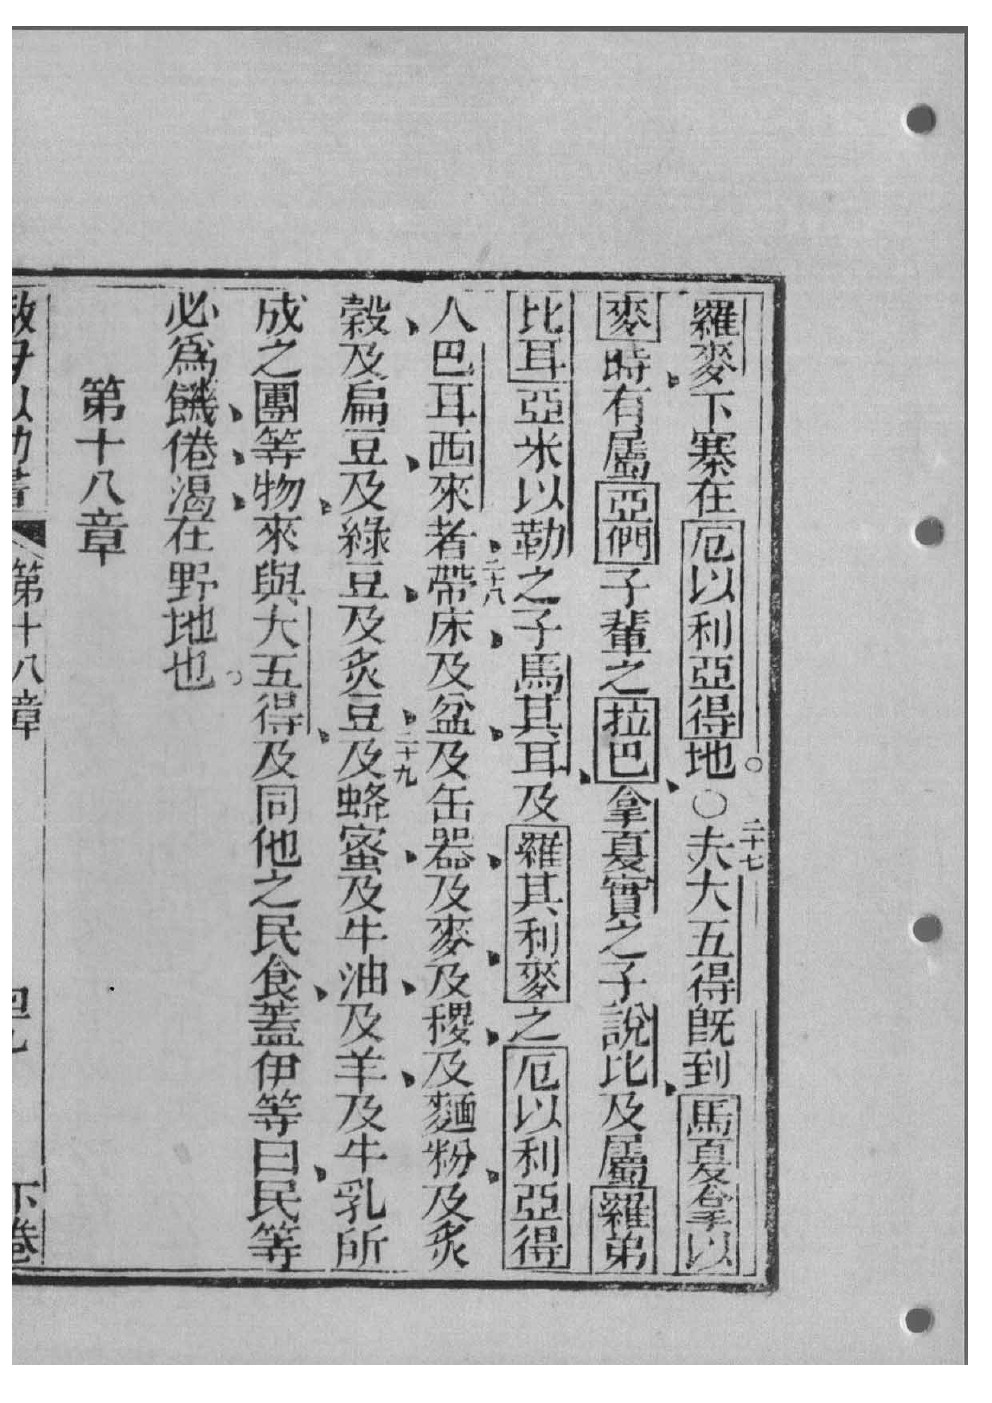 羅麥下寨在厄以利亞得地。○二十七夫大五得旣到馬夏拿以
麥時有屬亞們子輩之拉巴拿夏實之子說比及屬羅弟
比耳亞米以勒之子馬其耳及羅其利麥之厄以利亞得
人巴耳西來者二十八帶床及盆及缶器及麥及稷及麵粉及炙
穀及扁豆及綠豆及炙豆二十九及蜂蜜及牛油及羊及牛乳所
成之團等物來與大五得及同他之民食蓋伊等曰民等
必爲饑倦渴在野地也。
第十八章
第十八章
下卷